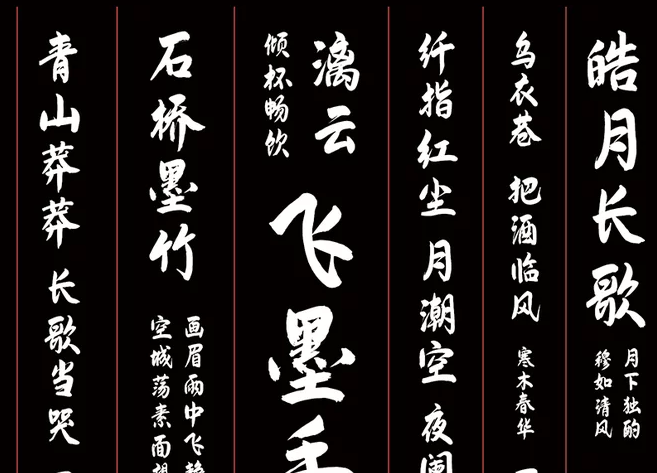 皓月长歌
月下独酌
穆如清风
乌衣巷 把酒临风
寒木春华
纤指红尘 月潮空 夜阑
漓云
倾杯畅饮
飞墨手
石桥墨竹
画眉雨中飞静
空城荡素面
青山莽莽 长歌当哭